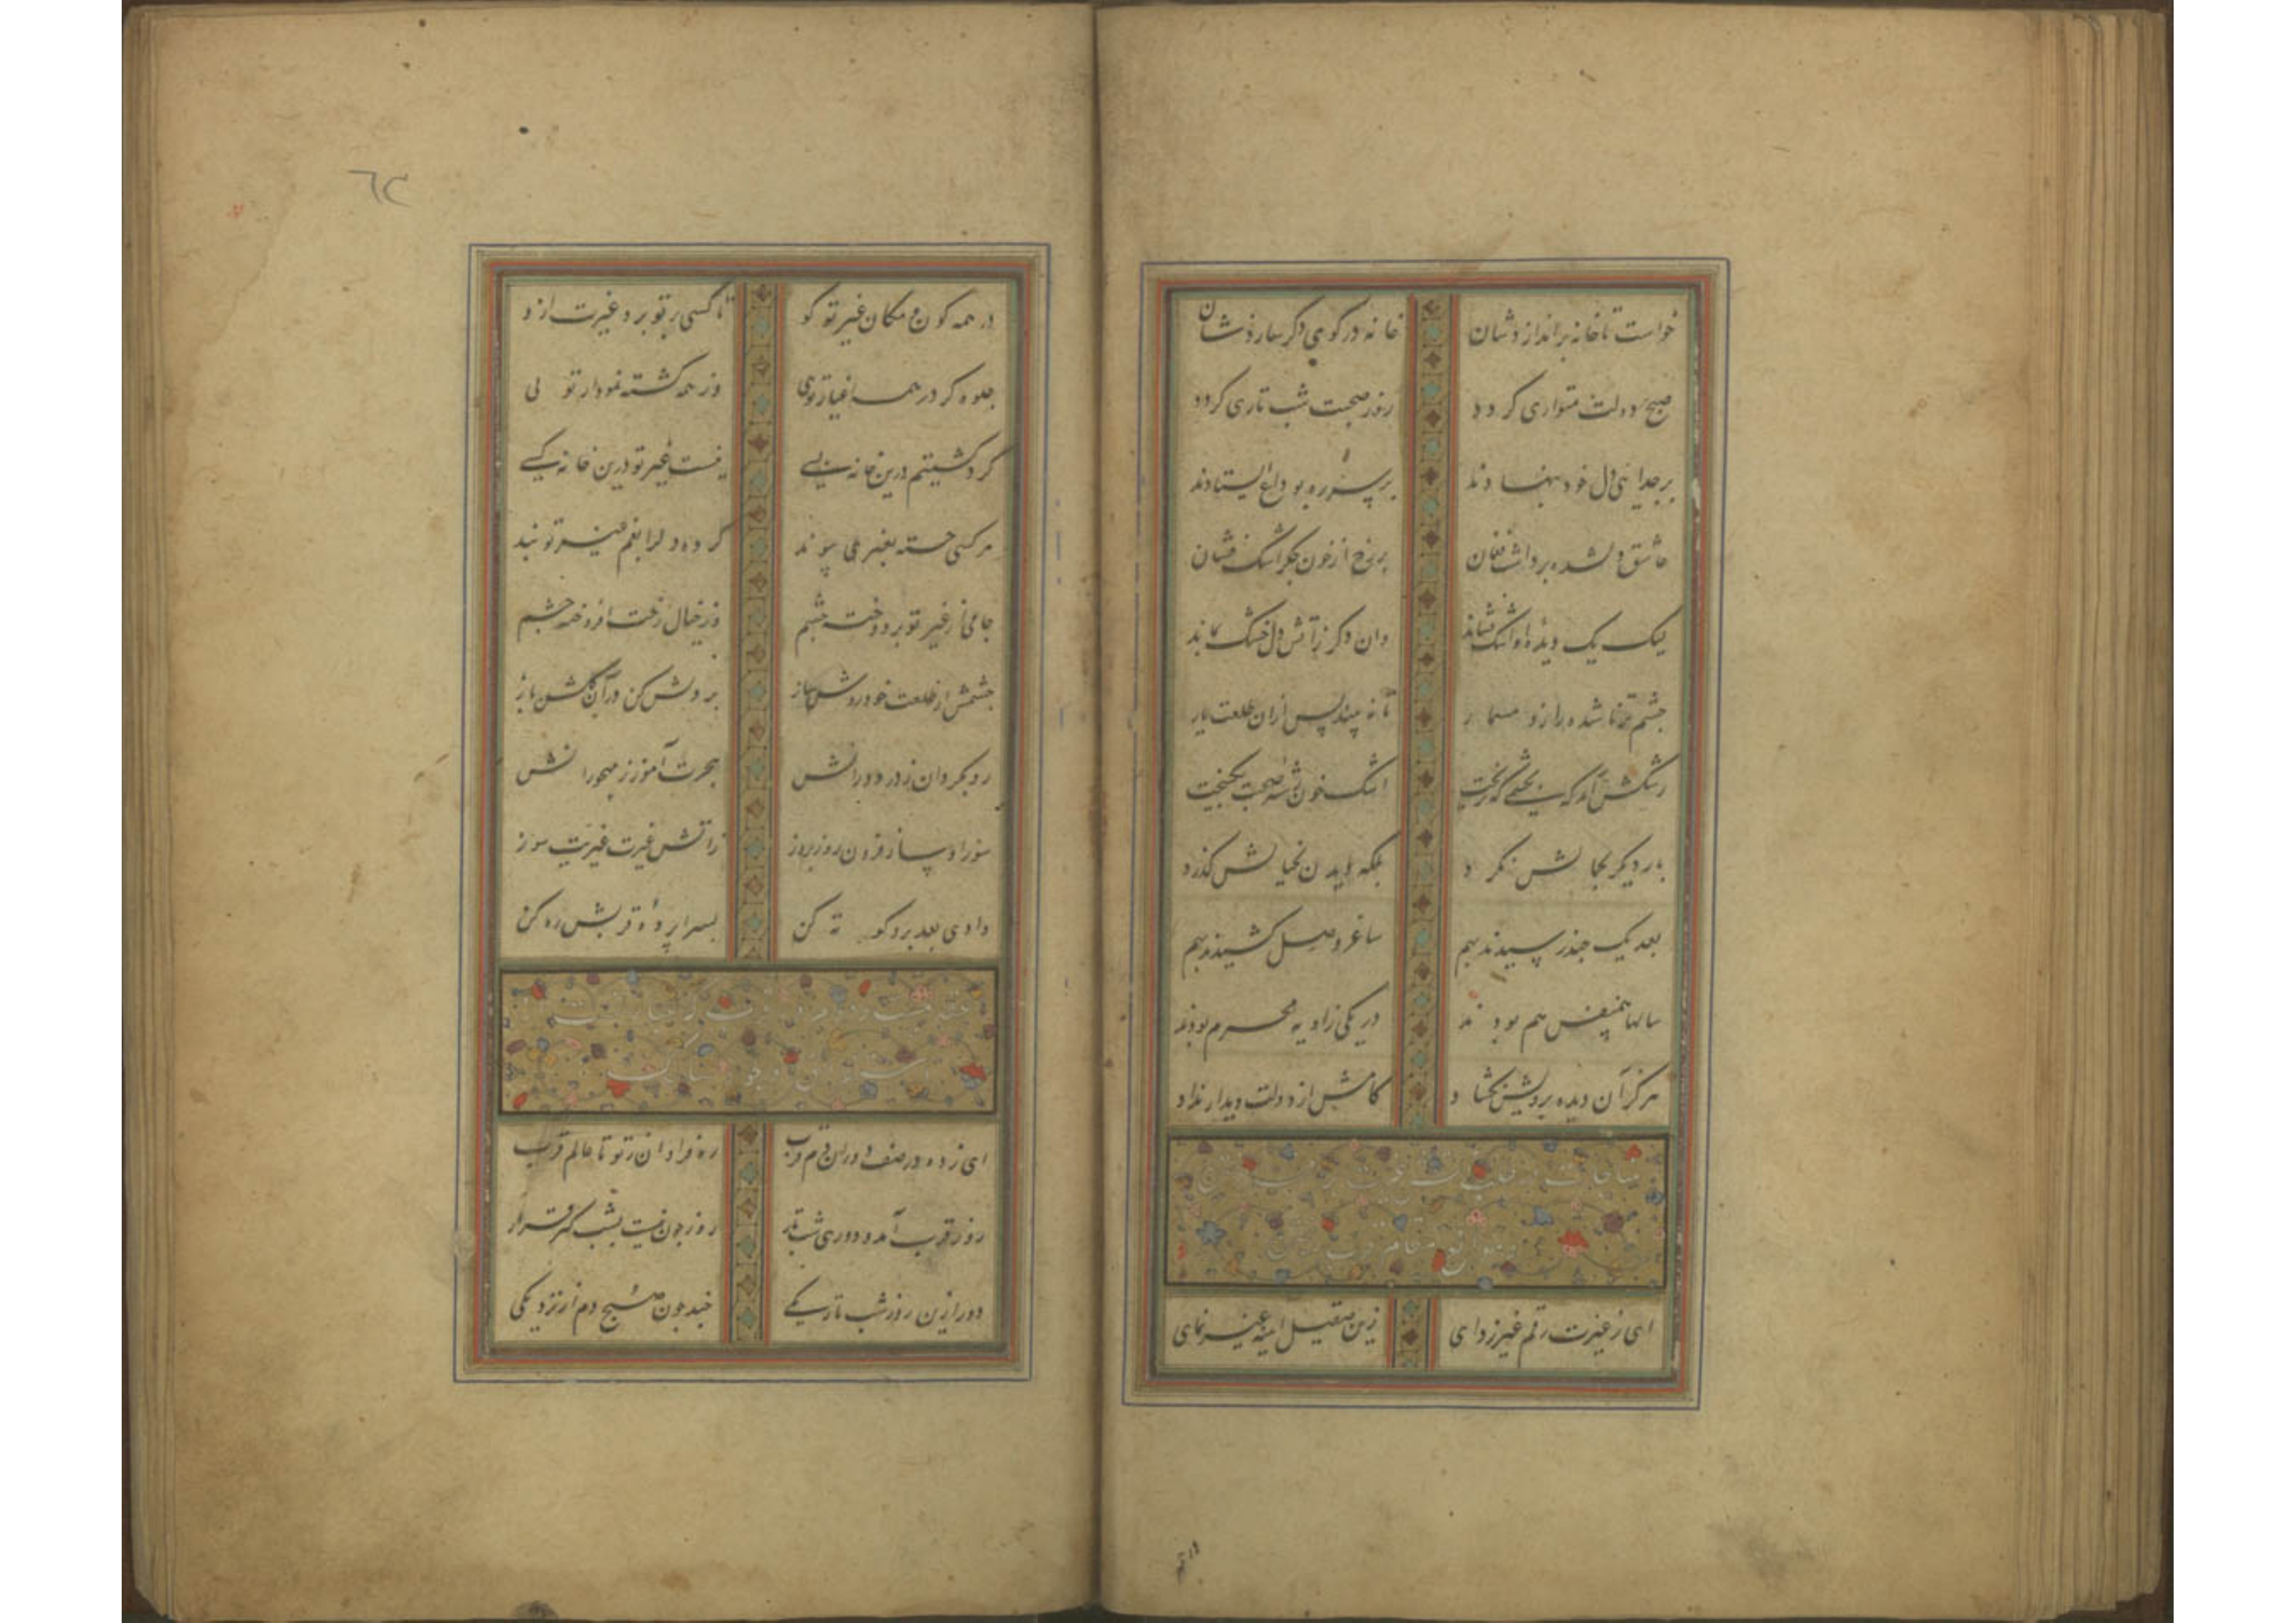 خواست تا خانه براندازدشان خانه در کوی دگر سازدشان
صبح دولت متواری گردد روز صحبت شب تاری گردد
بر جدائی دل خود بنهادند بر سر ره بوداع ایستادند
عاشق دلشده برداشت فغان بر رخ از خون جگر اشک فشان
لیک یک دیده او اشک فشاند وان دگر ز آتش دل خشک بماند
چشم تر ناشده را زد مسمار تا نه بیند پس ازان طلعت یار
رشکش آمد که اشک خون نشد صحبت
بار دیگر بجمالش نگرد بلکه بخیالش گذرد
بعد یک چند رسیدند بهم ساغر وصل کشیدند بهم
سالها همنفس هم بودند در یکی زاویه محرم بودند
هرگز آن دیده برویش نگشاد کامش از دولت دیدار نداد
مناجات در طلب غیرت
مقام قرب
ای ز غیرت رقم غیر زدای زین صیقل آینه غیر نمای
٦٣
در همه کون و مکان غیر تو کو تا کسی بر تو برد غیرت ازو
جلوه گر در همه اغیار توی وز همه گشته نمودار توی
گرد گشتیم درین خانه بسی نیست غیر تو درین خانه کسی
هر کسی جسته بغیری پیوند کرده دل را بغم غیر تو بند
جامی از غیر تو بر دوخته چشم وز خیال رخت افروخته چشم
چشمش از طلعت خود روشن ساز بر دلش کن در آن گلشن باز
رو بگردان ز در دورانش هجرت آموز ز مهجورانش
شوز او ساز فزون روز بروز ز آتش غیرت غیریت سوز
وادی بعد برو کوته کن بسراپرده قربش ره کن
ای زده در صف دوران دم قرب ره فراوان ز تو تا عالم قرب
روز قرب آمد و دوری شب تار روز چون نیست بشب گیر قرار
دور ازین روز شب تاریکی چند چون صبح دم از نزدیکی